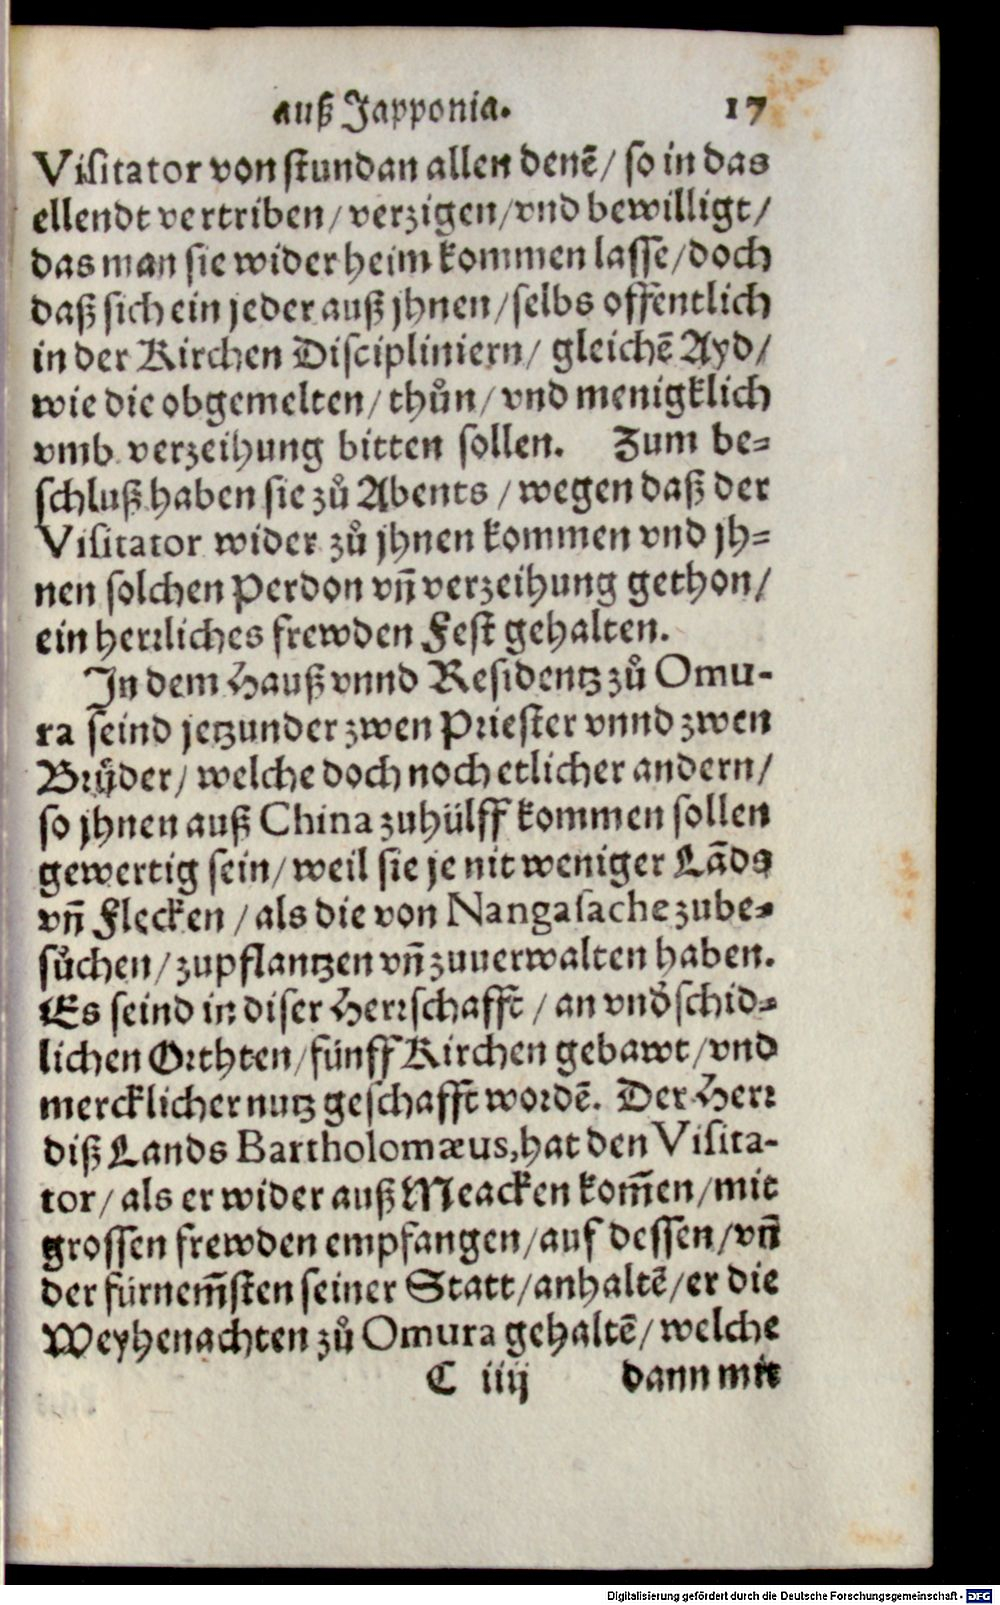 auß Japponia. 17
Visitator von stundan allen denẽ/ so in das
ellendt vertriben/ verzigen/ vnd bewilligt/
das man sie wider heim kommen lasse/ doch
daß sich ein jeder auß jhnen/ selbs offentlich
in der Kirchen Discipliniern/ gleichẽ Ayd/
wie die obgemelten/ thůn/ vnd menigklich
vmb verzeihung bitten sollen. Zum be=
schluß haben sie zů Abents / wegen daß der
Visitator wider zů jhnen kommen vnd jh=
nen solchen Perdon vñ verzeihung gethon/
ein herrliches frewden Fest gehalten.
In dem Hauß vnnd Residentz zů Omu-
ra seind jetzunder zwen Priester vnnd zwen
Brůder/ welche doch noch etlicher andern/
so jhnen auß China zuhülff kommen sollen
gewertig sein/ weil sie je nit weniger Lãds
vñ Flecken / als die von Nangasache zube=
sůchen/ zupflantzen vñ zuuerwalten haben.
Es seind in diser Herrschafft / an vnd̃schid=
lichen Orthten/ fünff Kirchen gebawt/ vnd
mercklicher nutz geschafft wordẽ. Der Herr
diß Lands Bartholomæus, hat den Visita-
tor/ als er wider auß Meacken kom̃en/ mit
grossen frewden empfangen/ auf dessen/ vñ
der fürnem̃sten seiner Statt/ anhaltẽ/ er die
Weyhenachten zů Omura gehaltẽ/ welche
C iiij dann mit
Digitalisierung gefördert durch die Deutsche Forschungsgemeinschaft - DFG